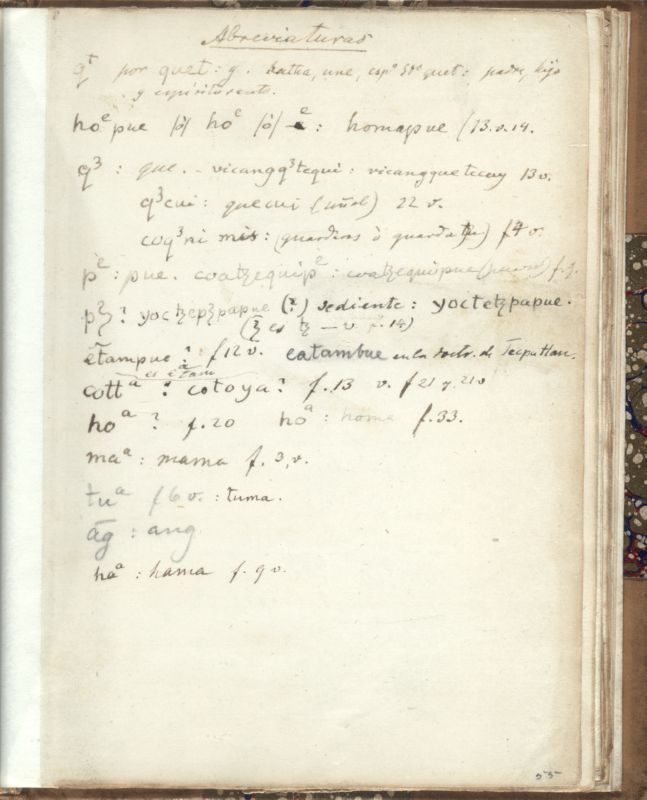 Abreviaturas
qᵗ por quet: y. hatha, une, espº Stº quet: padre, hijo
y espíritu santo.
hoᵉpue /ó/ hoᵉ /ó/ -ᵉ: homapue f 13. v. 14.
q³: que. - vicangq³tequi: vicangquetecuy 13 v.
q³cui: quecui (uñol) 22 v.
coq³ni mis: (guardiros ó guarda te) f4 v.
pᵉ: pue. coatꜩequipᵉ: coatꜩequipue f.
pꜩ? yoctꜩepꜩpapue (?) sediente: yoctetꜩpapue.
(ꜩ es ꜩ — v. f. 14)
ētampue? f12 v. eatambue en la doctr. de Tecpatlan.
es ētam
cottᵃ? cotoya? f. 13 v. f 21 y 21 v
hoᵃ? f. 20 hoᵃ: homa f. 33.
maᵃ: mama f. 3, v.
tuᵃ f 6 v.: tuma.
āg: ang
haᵃ: hama f. 9 v.
55